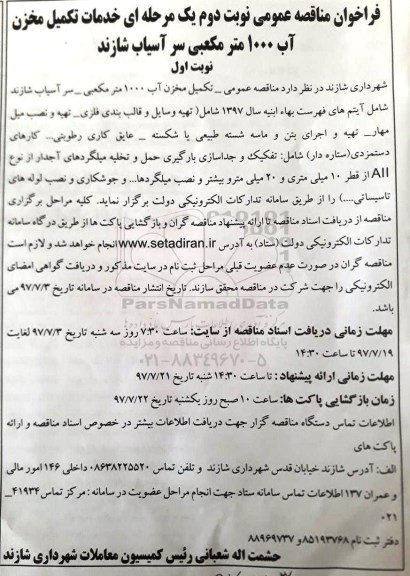 فراخوان مناقصه عمومی نوبت دوم یک مرحله ای خدمات تکمیل مخزن
آب ۱۰۰۰ متر مکعبی سر آسیاب شازند
نوبت اول
شهرداری شازند در نظر دارد مناقصه عمومی _ تکمیل مخزن آب ۱۰۰۰ متر مکعبی _ سر آسیاب شازند
شامل آیتم های فهرست بهاء ابنیه سال ۱۳۹۷ شامل( تهیه وسایل و قالب بندی فلزی_ تهیه و نصب میل
مهار_ تهیه و اجرای بتن و ماسه شسته طبیعی یا شکسته _ عایق کاری رطوبتی... کارهای
دستمزدی(ستاره دار) شامل: تفکیک و جداسازی بارگیری حمل و تخلیه میلگردهای آجدار از نوع
AII از قطر ۱۰ میلی متری و ۲۰ میلی مترو بیشتر و نصب میلگردها... و جوشکاری و نصب لوله های
تاسیساتی....) را از طریق سامانه تدارکات الکترونیکی دولت برگزار نماید. کلیه مراحل برگزاری
مناقصه از دریافت اسناد مناقصه تا ارائه پیشنهاد مناقصه گران و بازگشایی پاکت ها از طریق درگاه سامانه
تدارکات الکترونیکی دولت (ستاد) به آدرس www.setadiran.ir انجام خواهد شد و لازم است
مناقصه گران در صورت عدم عضویت قبلی مراحل ثبت نام در سایت مذکور و دریافت گواهی امضای
الکترونیکی را جهت شرکت در مناقصه محقق سازند. تاریخ انتشار مناقصه در سامانه تاریخ ۹۷/۷/۳ می
باشد.
مهلت زمانی دریافت اسناد مناقصه از سایت: ساعت ۷:۳۰ روز سه شنبه تاریخ ۹۷/۷/۳ لغایت
۹۷/۷/۱۹ تا ساعت ۱۴:۳۰
مهلت زمانی ارائه پیشنهاد : تا ساعت ۱۴:۳۰ شنبه تاریخ ۹۷/۷/۲۱
زمان بازگشایی پاکت ها: ساعت ۱۰ صبح روز یکشنبه تاریخ ۹۷/۷/۲۲
اطلاعات تماس دستگاه مناقصه گزار جهت دریافت اطلاعات بیشتر در خصوص اسناد مناقصه و ارائه
پاکت های
الف: آدرس شازند خیابان قدس شهرداری شازند و تلفن تماس ۰۸۶۳۸۲۲۵۵۲۰ داخلی ۱۴۶ امور مالی
و عمران ۱۳۷ اطلاعات تماس سامانه ستاد جهت انجام مراحل عضویت در سامانه : مرکز تماس ۴۱۹۳۴_
۰۲۱
دفتر ثبت نام ۸۵۱۹۳۷۶۸ و ۸۸۹۶۹۷۳۷
حشمت اله شعبانی رئیس کمیسیون معاملات شهرداری شازند
ParsNamadData
پایگاه اطلاع رسانی مناقصه و مزایده
۰۲۱-۸۸۳۴۹۶۷۰-۵